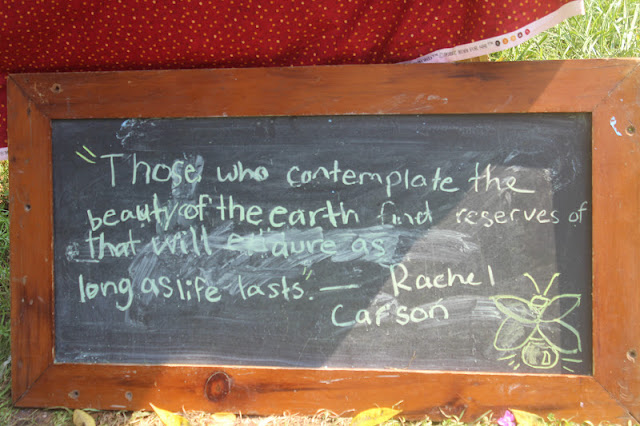 "Those who contemplate the
beauty of the earth find reserves of
that will endure as
long as life lasts". — Rachel
Carson